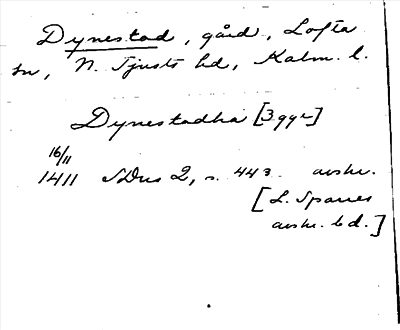 Dynestad, gård, Lofta
sn, N. Tjusts hd, Kalm. l.
Dynestadha [3 ggr]
16/11
1411 SDns 2, s. 443. avskr.
[L. Sparres
avskr. bd.]